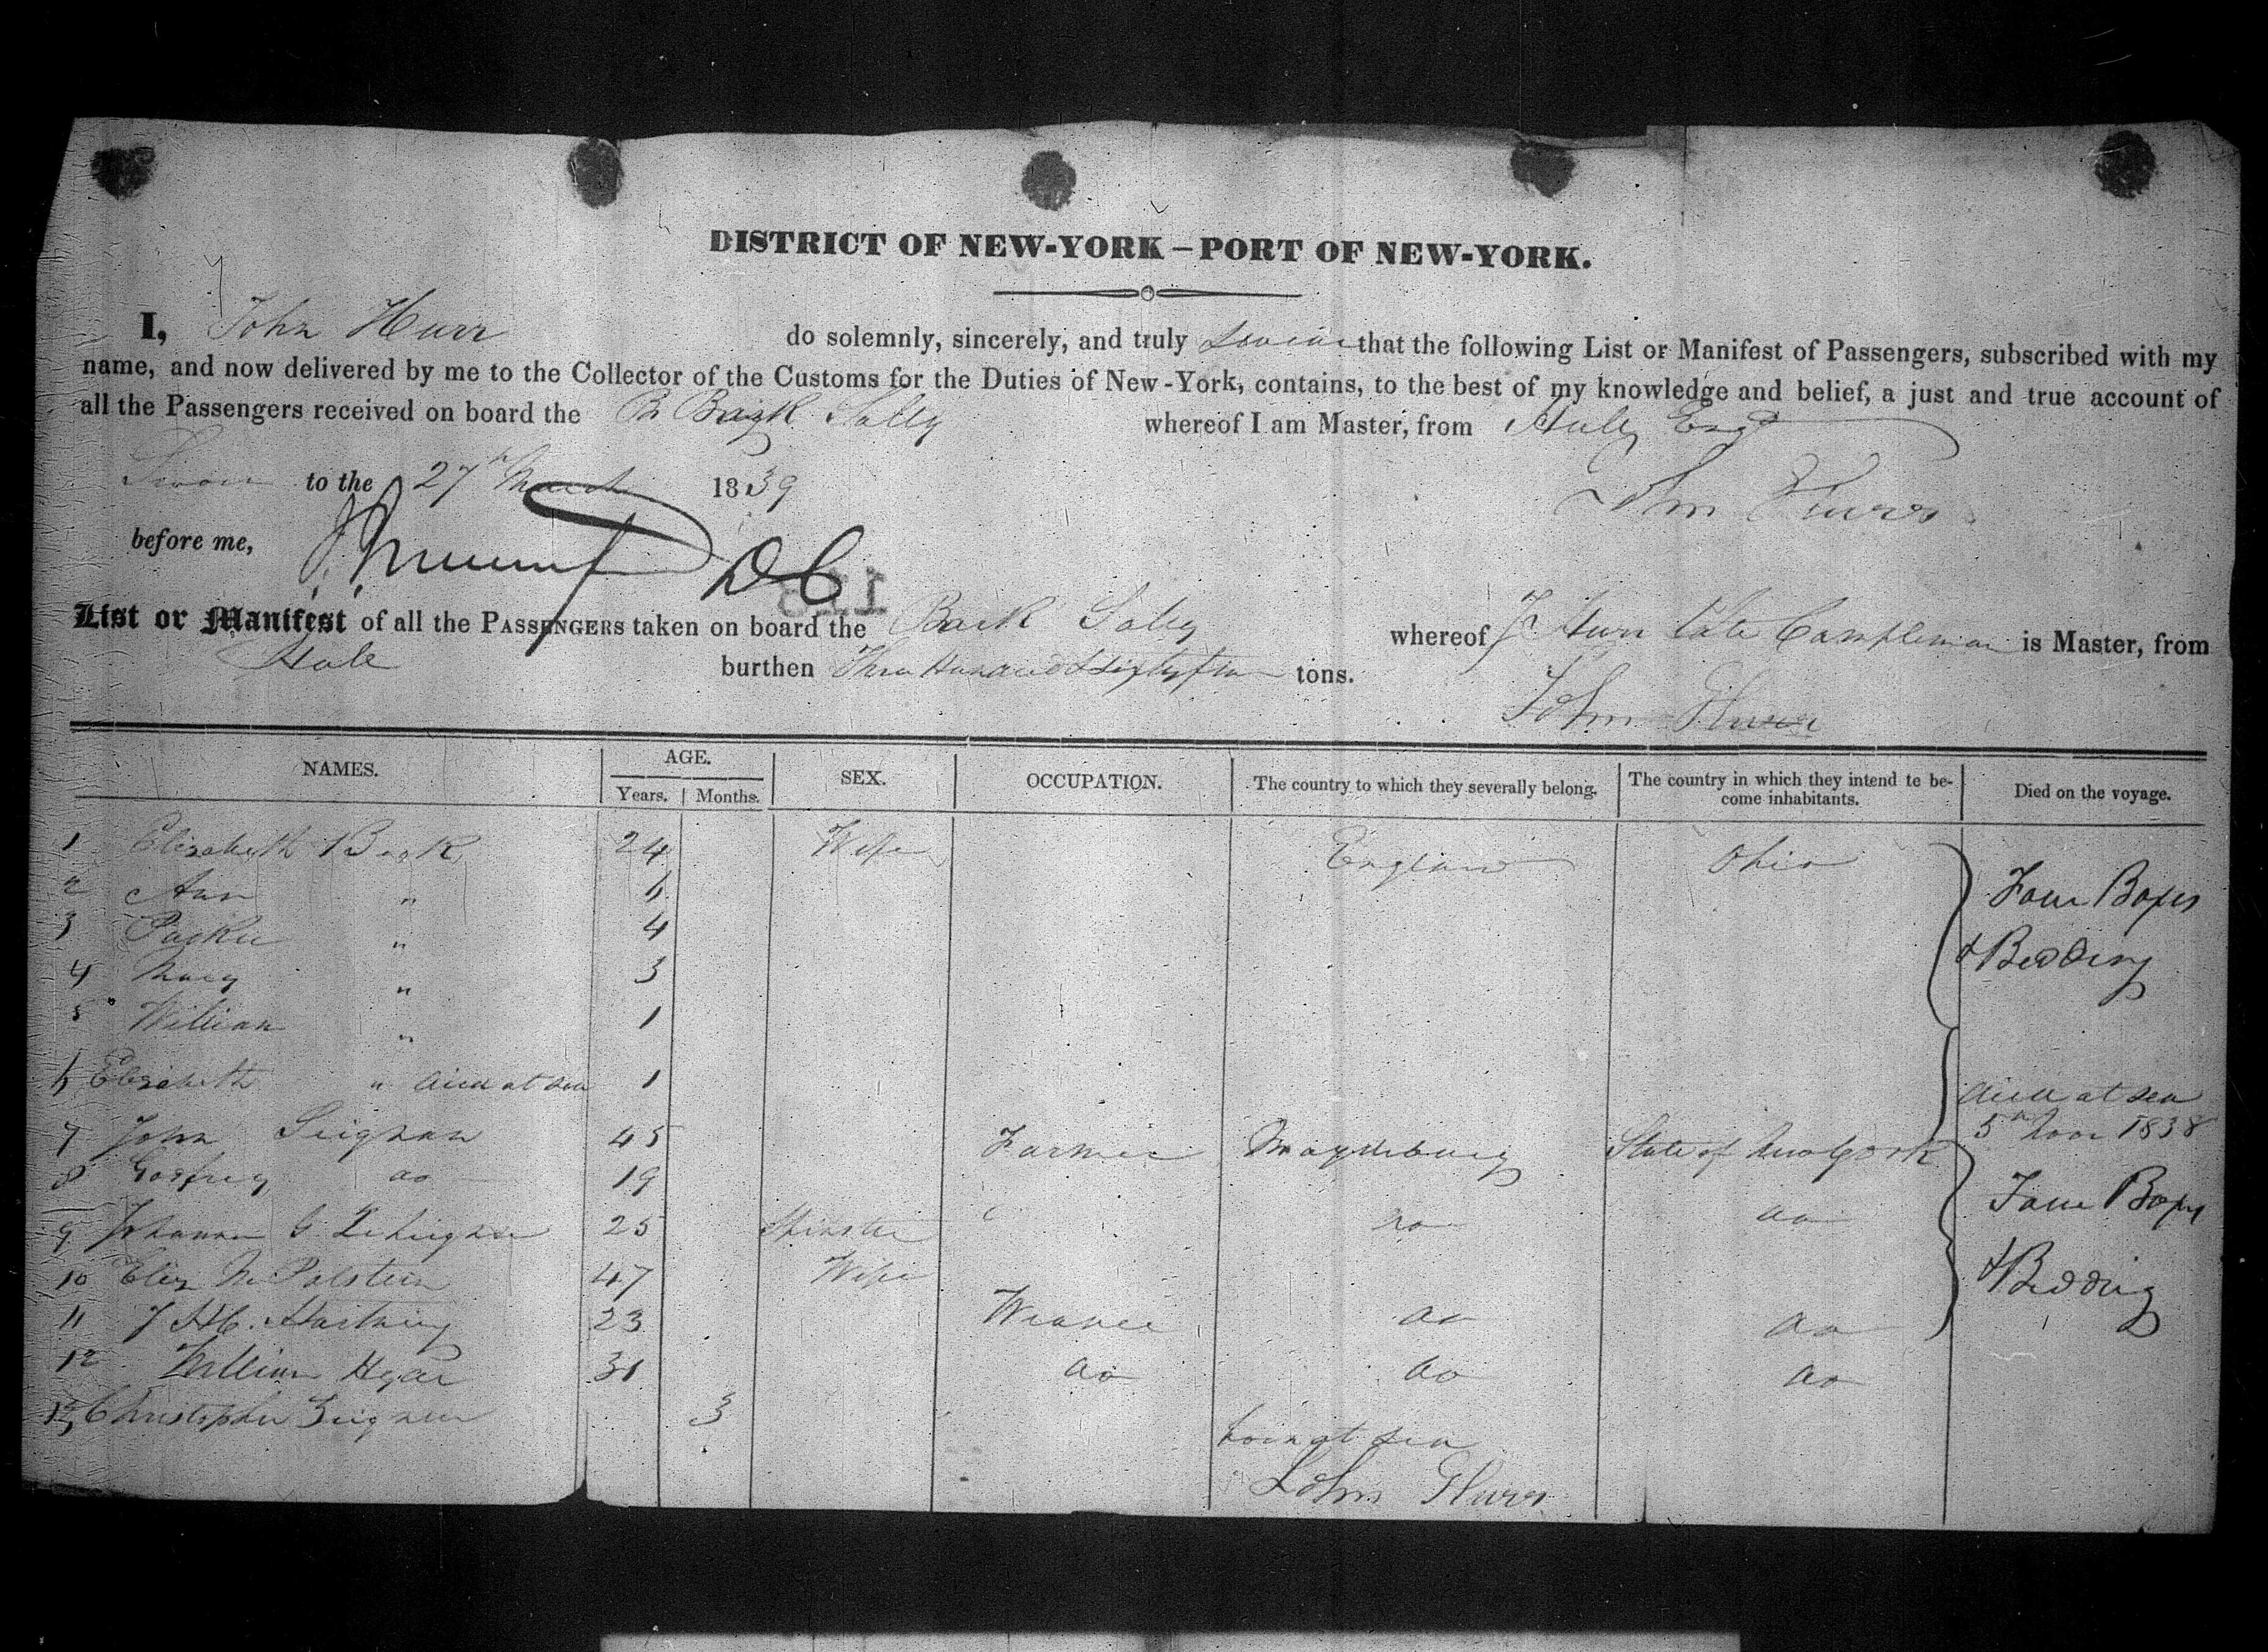 DISTRICT OF NEW-YORK – PORT OF NEW-YORK.
I, John Hurr do solemnly, sincerely, and truly swear that the following List or Manifest of Passengers, subscribed with my
name, and now delivered by me to the Collector of the Customs for the Duties of New-York, contains, to the best of my knowledge and belief, a just and true account of
all the Passengers received on board the Br Bark Sally whereof I am Master, from Hull, Engd
Sworn to the 27th March 1839
John Hurr
before me, DC
113
List or Manifest of all the PASSENGERS taken on board the Bark Sally whereof J Hurr late Campleman is Master, from
Hull burthen Three Hundred & Sixty tons.
John Hurr
NAMES. AGE. SEX. OCCUPATION. The country to which they severally belong. The country in which they intend to be-come inhabitants. Died on the voyage.
Years. Months.
1 Elizabeth 24 Wife England Ohio
2 Ann " 6 Four Boxes
3 " 4
4 Mary " 3 & Bedding
5 William " 1
6 Elizabeth " died at sea 1 died at sea
5th Nov 1838
7 John 45 Farmer Magdeburg State of New York
8 Godfrey do 19 Four Boxes
9 Johanna G. 25 Spinster do do
10 47 Wife & Bedding
11 J H C. Hartning 23 Weaver do do
12 William 31 do do do
13 Christopher 3 born at sea
John Hurr